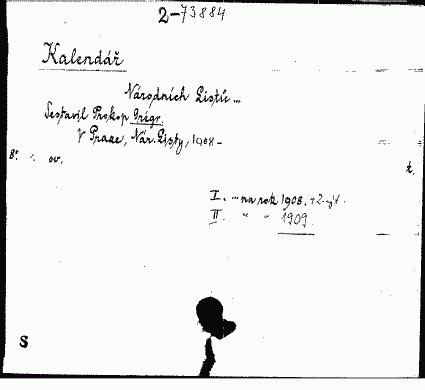 2-73884
Kalendář
Národních Listů ...
Sestavil Prokop Grégr.
V Praze, Nár. Listy, 1908 -
8°. ov. t.
I. - na rok 1908.
II. " " 1909.
S